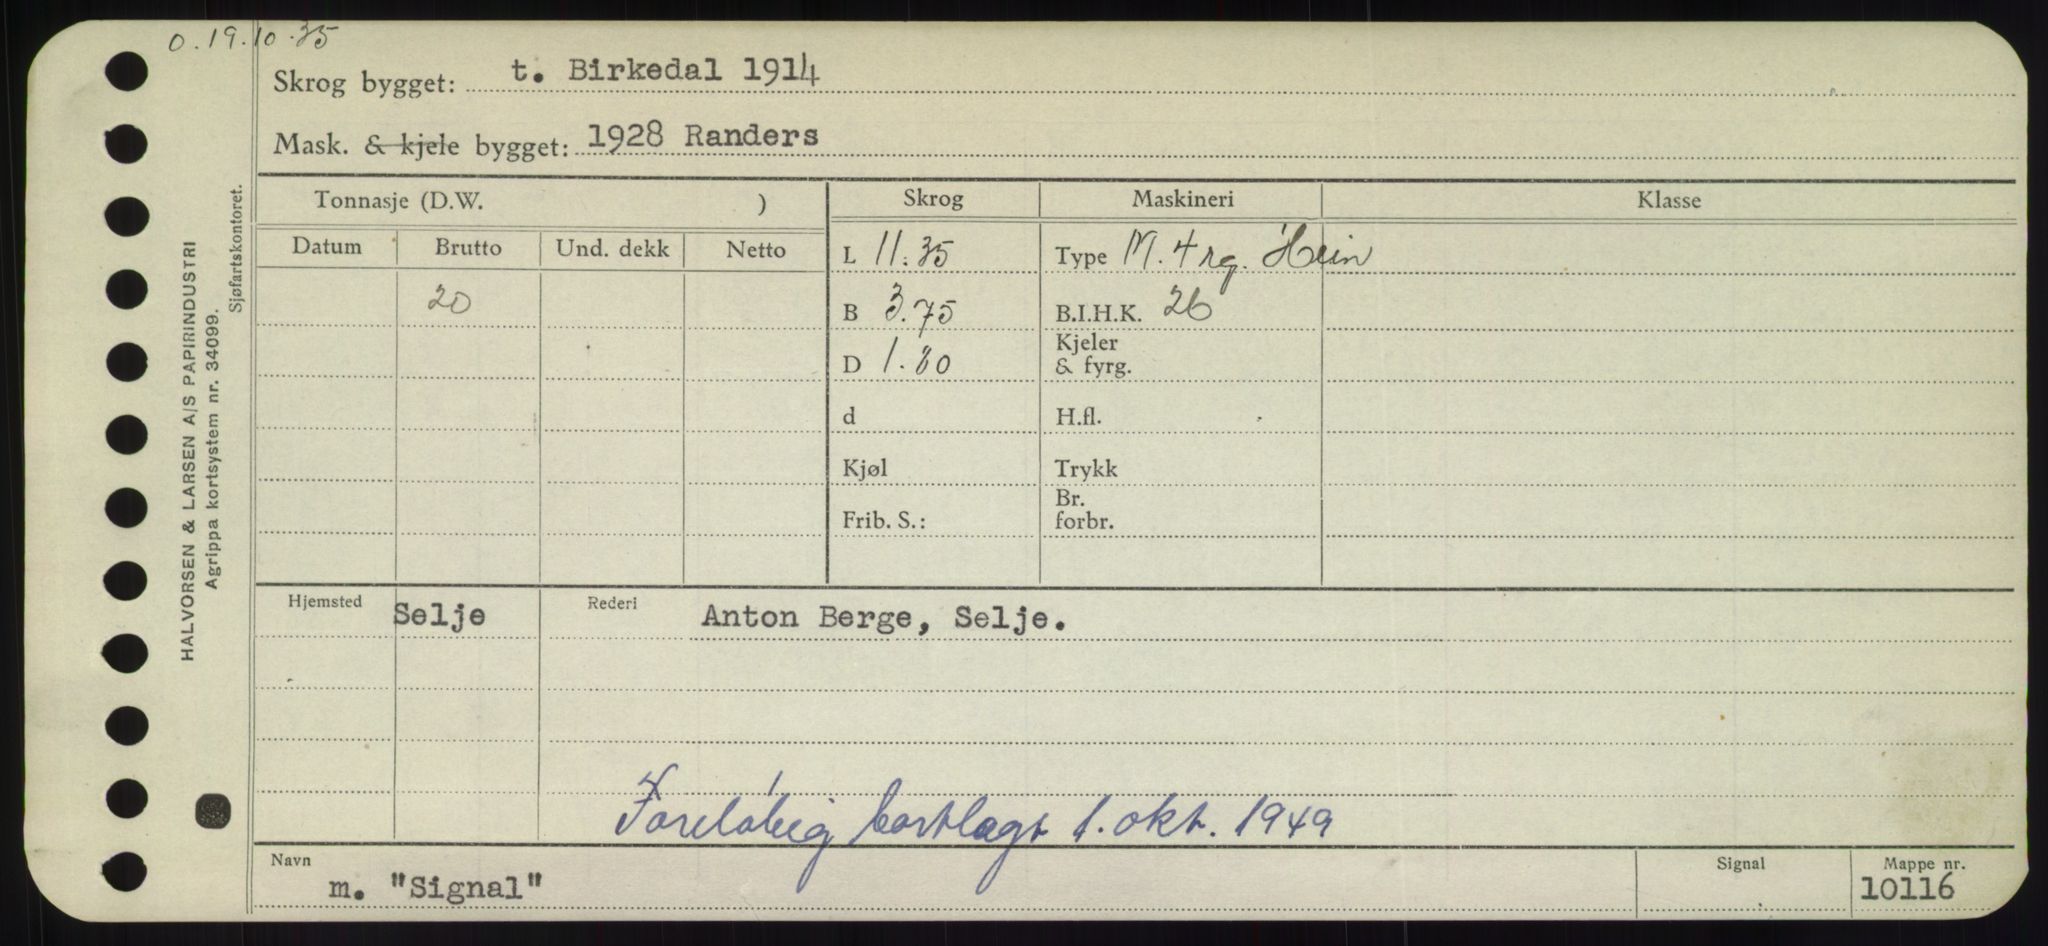 0.19.10.35
Skrog bygget: t. Birkedal 1914
Mask. & kjele bygget: 1928 Randers
Tonnasje (D.W. ) Skrog Maskineri Klasse
Datum Brutto Und. dekk Netto L 11.35 Type M. 4 rg. Hein
20 B 3.75 B.I.H.K. 26
D 1.80 Kjeler & fyrg.
d H.fl.
Kjøl Trykk
Frib. S.: Br. forbr.
Hjemsted Selje Rederi Anton Berge, Selje.
Foreløbig bortlagt 1. okt. 1949
Navn m. "Signal" Signal Mappe nr. 10116
HALVORSEN & LARSEN A/S PAPIRINDUSTRI
Agrippa kortsystem nr. 34099.
Sjøfartskontoret.